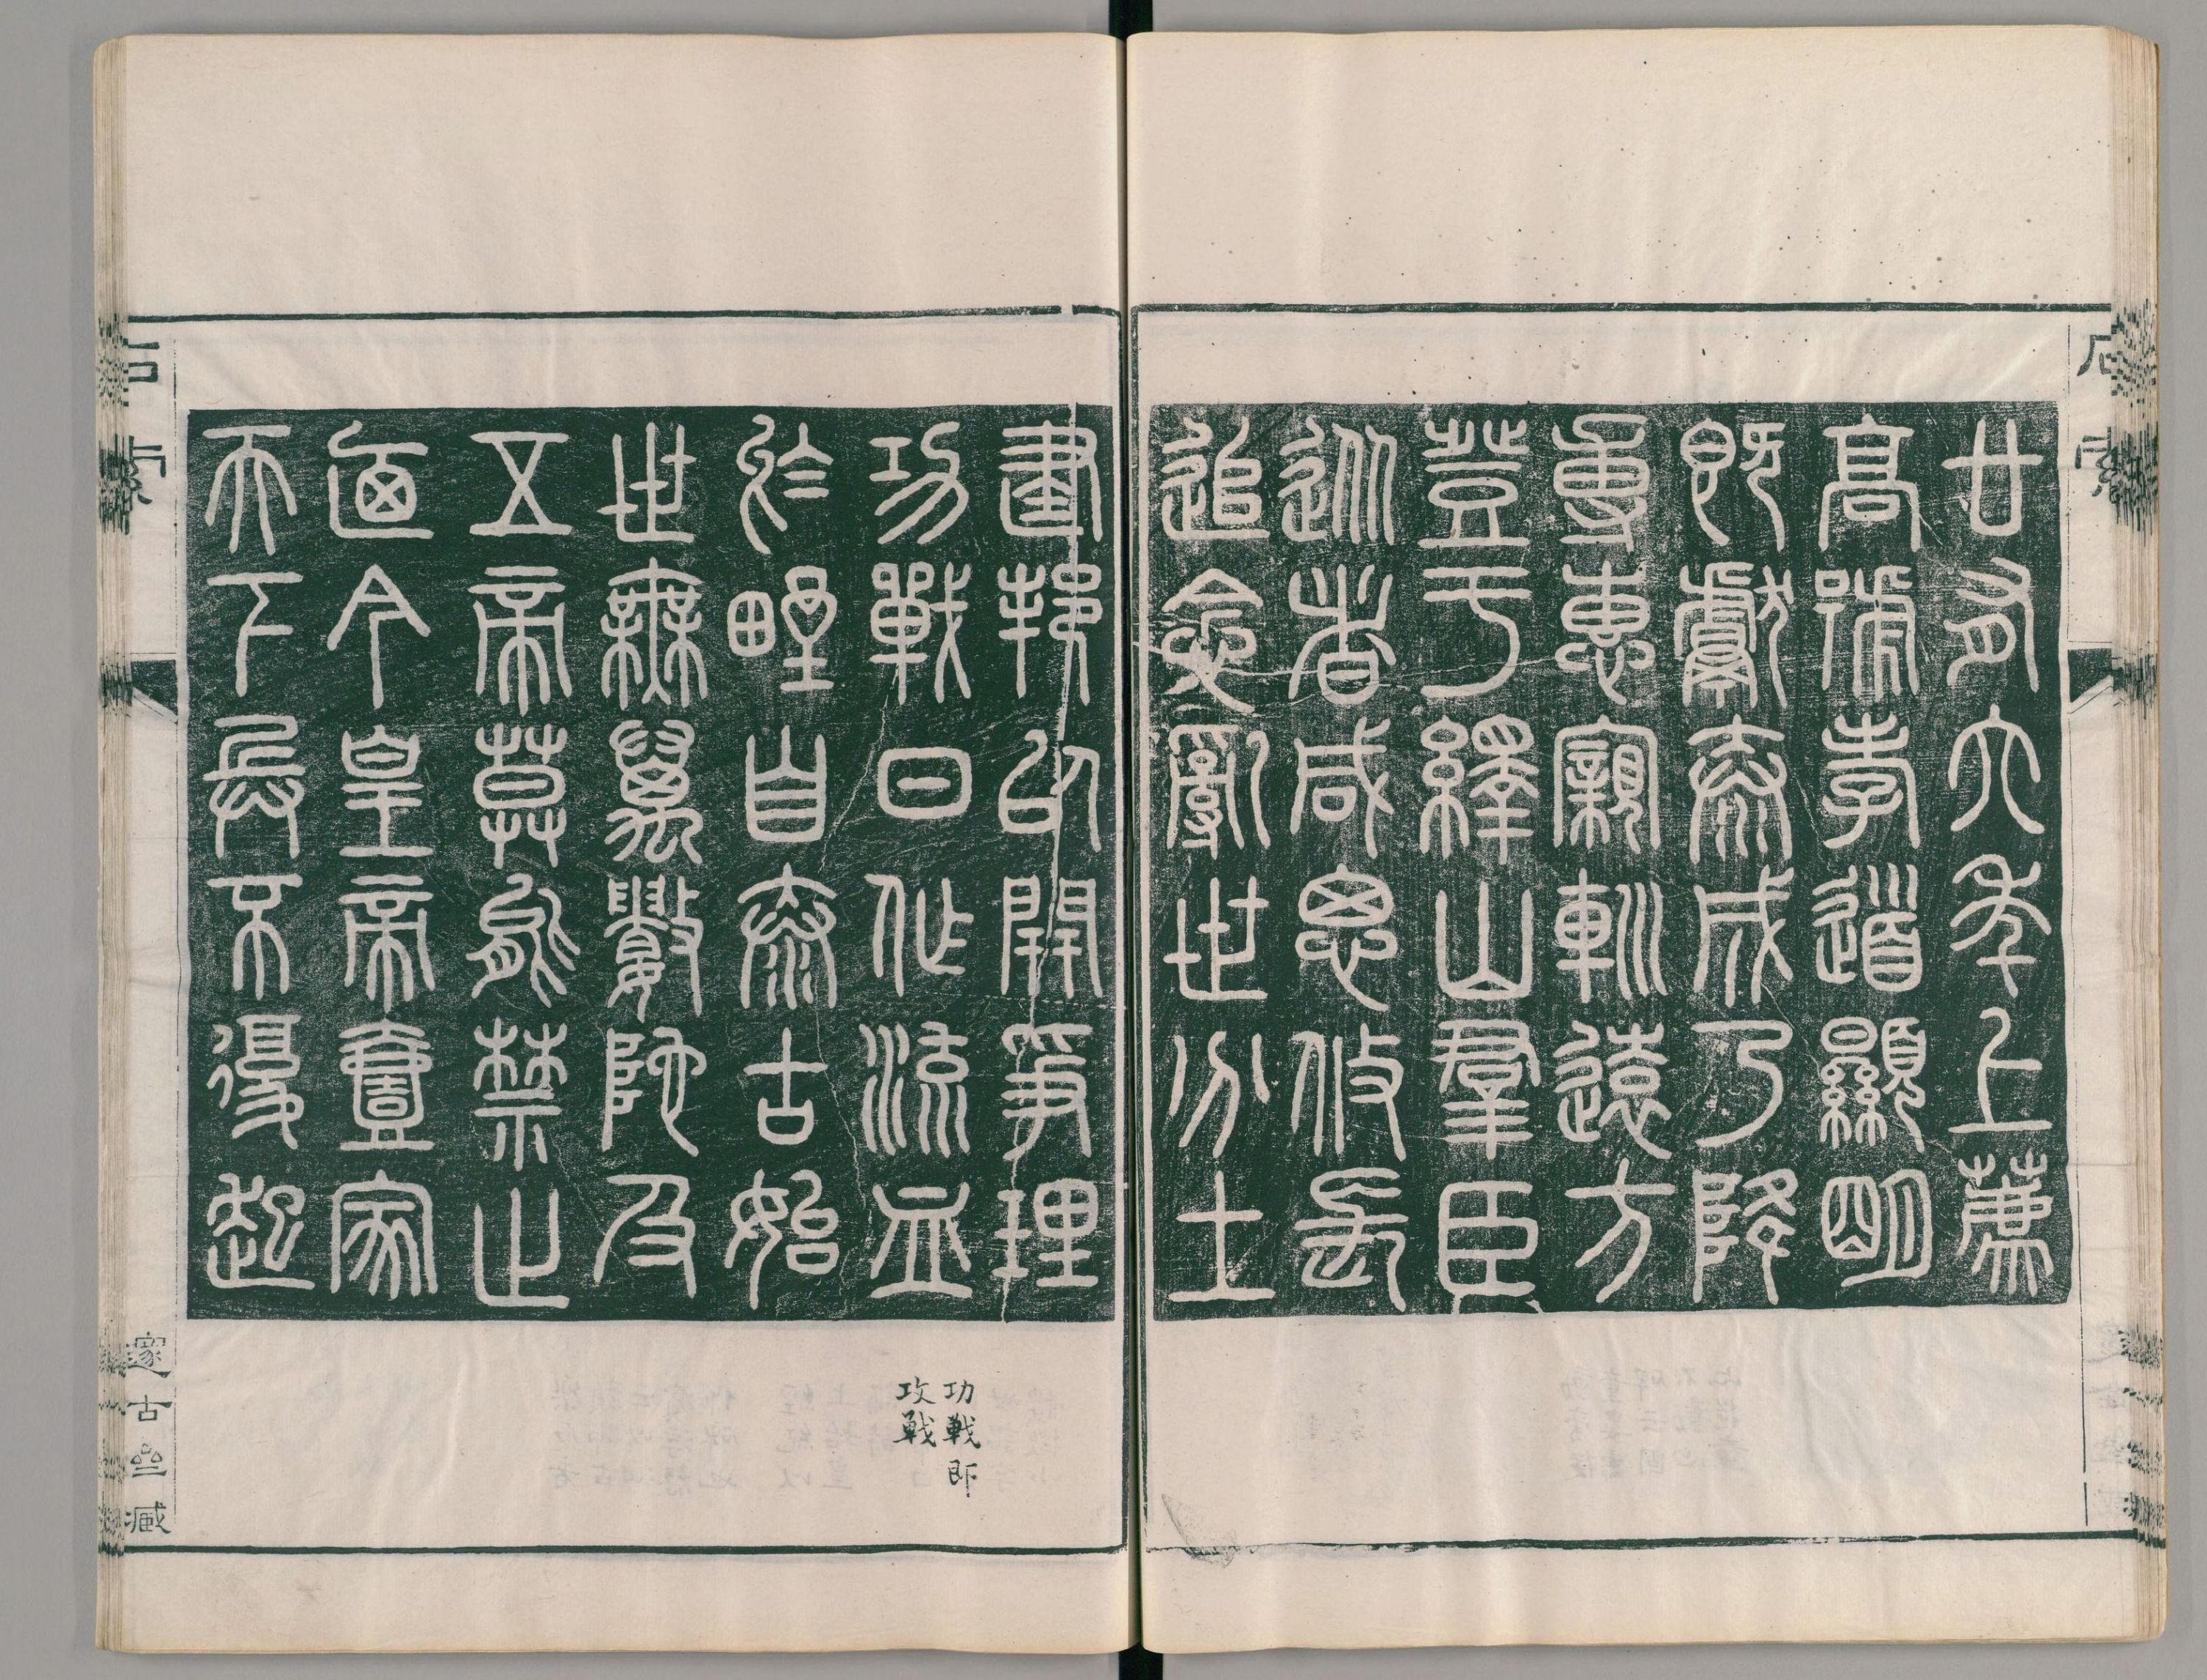 石索
廿有六年上薦
高號孝道顯明
既獻泰成乃降
專惠親巡遠方
登于繹山羣臣
從者咸思攸長
追念亂世分土
建邦以開爭理
功戰日作流血
於野自泰古始
世無萬數陀及
五帝莫能禁止
迺今皇帝壹家
天下兵不復起
功戰即
攻戰
石索
邃古齋臧